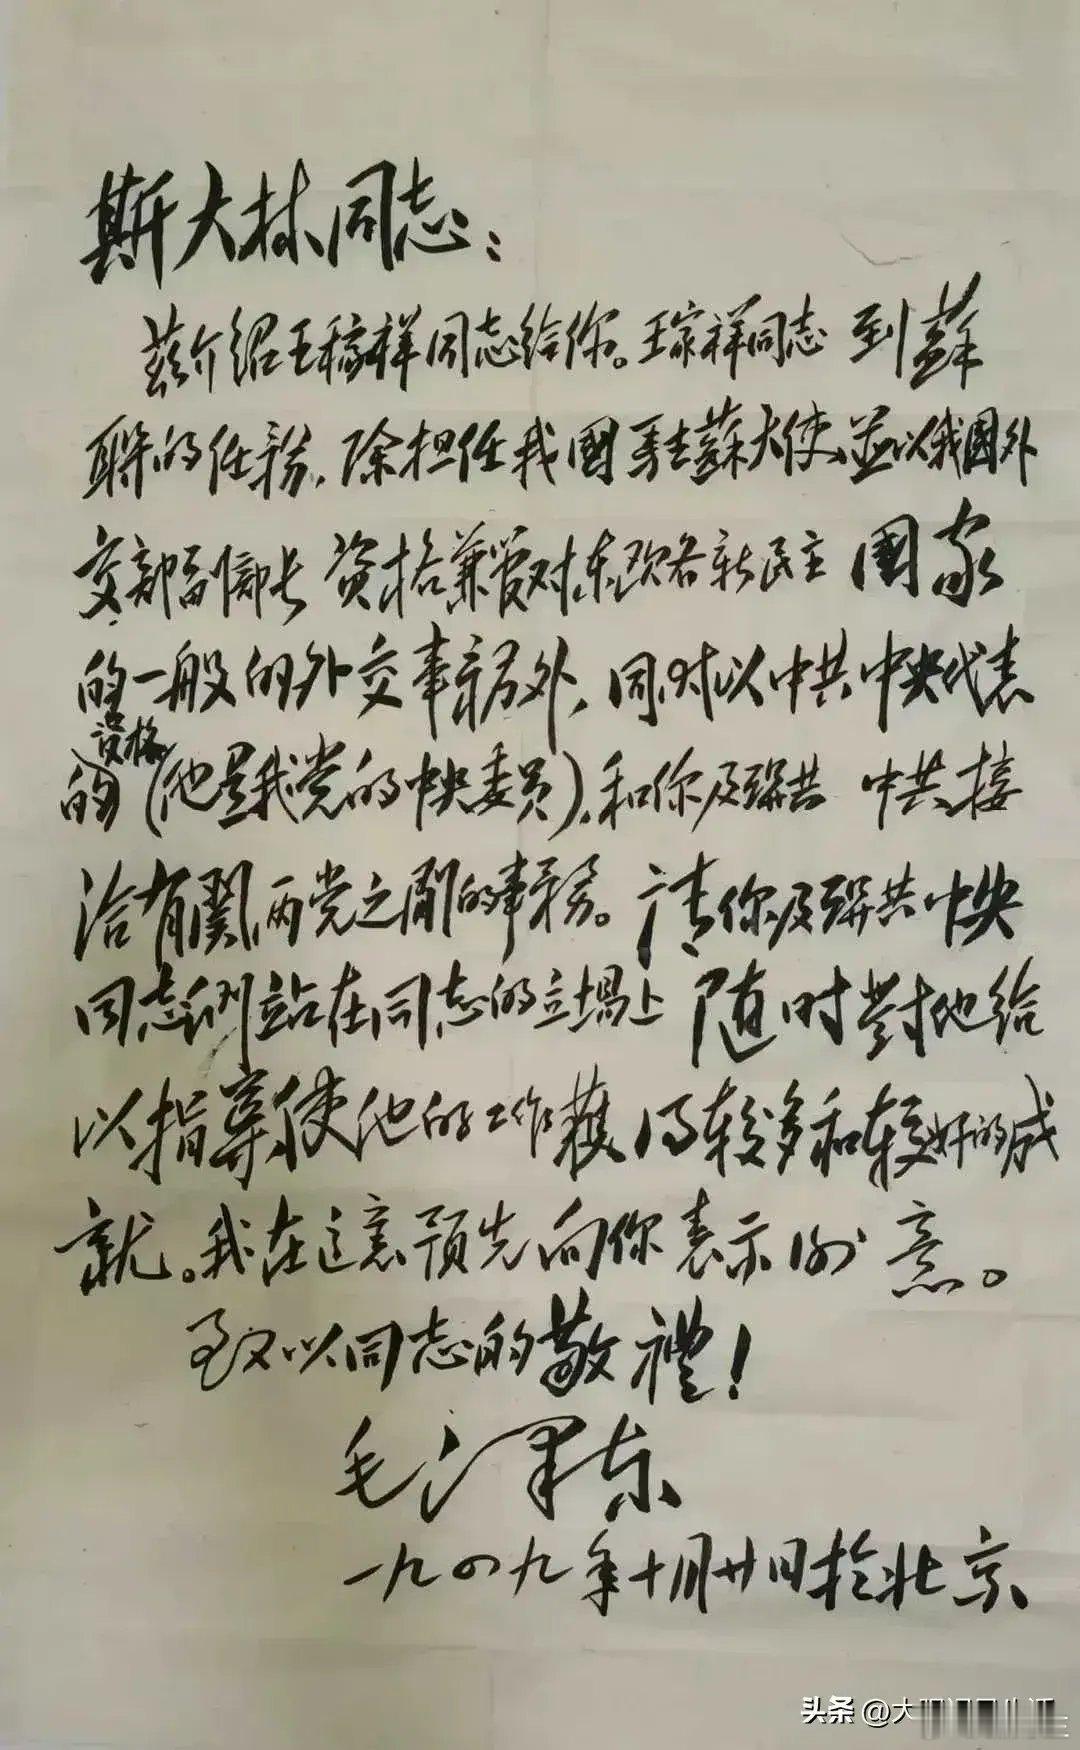 斯大林同志：
兹介绍王稼祥同志给你。王家祥同志 到蘇
联的任務，除担任我國駐蘇大使、並以我國外
交部副部长 資格兼管对东欧各新民主 國家
的一般的外交事務外，同时以中共中央代表
資格
的（他是我党的中央委員），和你及联共 中共接
洽有関两党之間的事務。请你及联共中央
同志们站在同志的立場上 随时對他给
以指導，使他的工作獲得较多和较好的成
就。我在这裏预先向你表示谢意。
致以同志的敬禮！
毛泽东
一九四九年十月廿日於北京
头条 @大